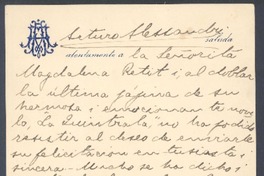 Arturo Alessandri
saluda
atentamente a la Señorita
Magdalena Petit i al doblar
la última pájina de su
hermosa i emocionante no
vela, La Quintrala" no ha podido
resistir al deseo de enviarle
su felicitacion entusiasta i
sincera.- Mucho se ha dicho i